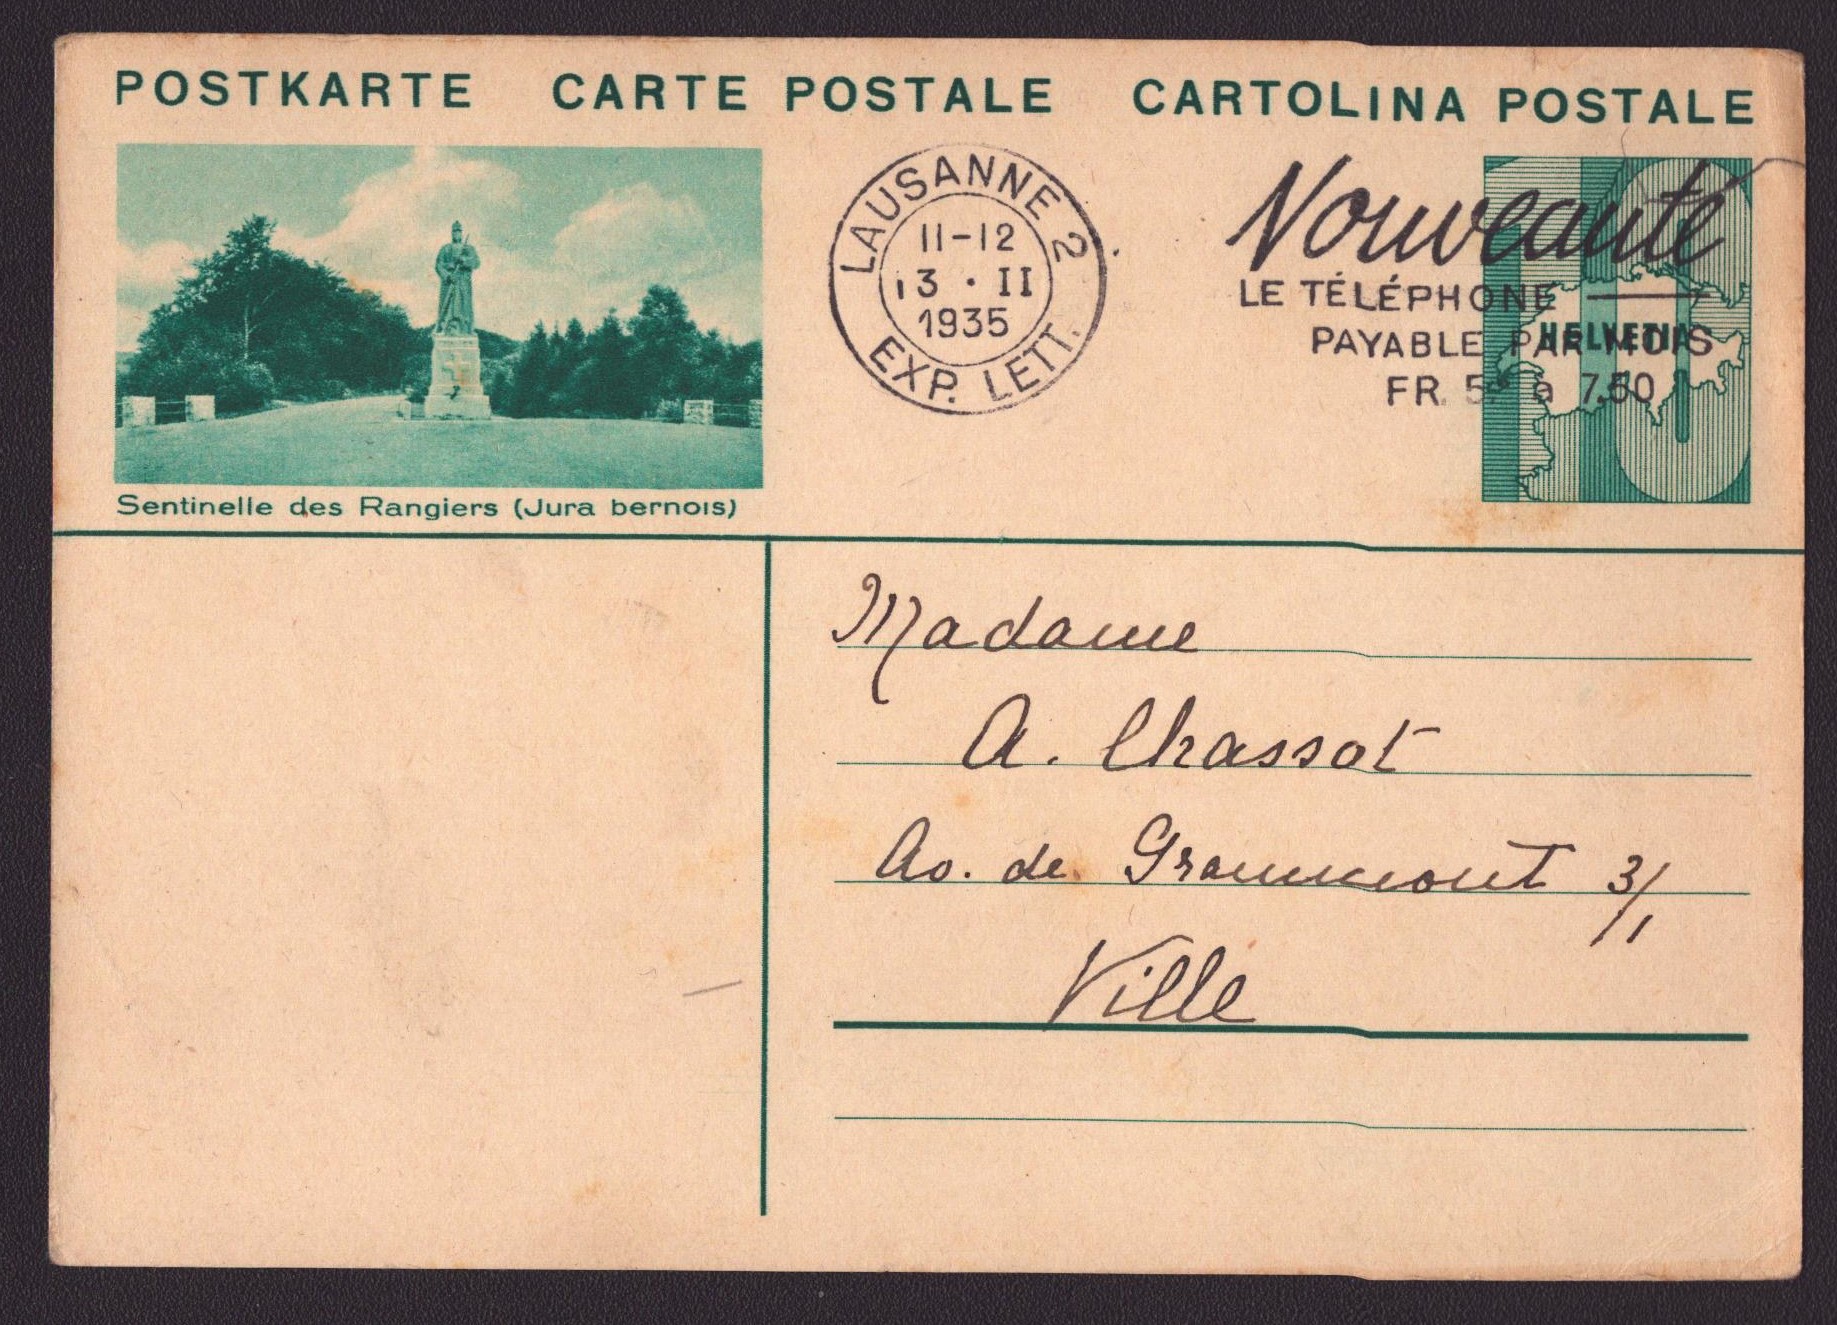 POSTKARTE CARTE POSTALE CARTOLINA POSTALE
Sentinelle des Rangiers (Jura bernois)
LAUSANNE 2
11-12
13 · II
1935
EXP. LETT.
Nouveauté
LE TÉLÉPHONE
PAYABLE PAR MOIS
FR. 5.- à 7.50
10
HELVETIA
Madame
A. Chassot
Av. de Grammont 3/1
Ville